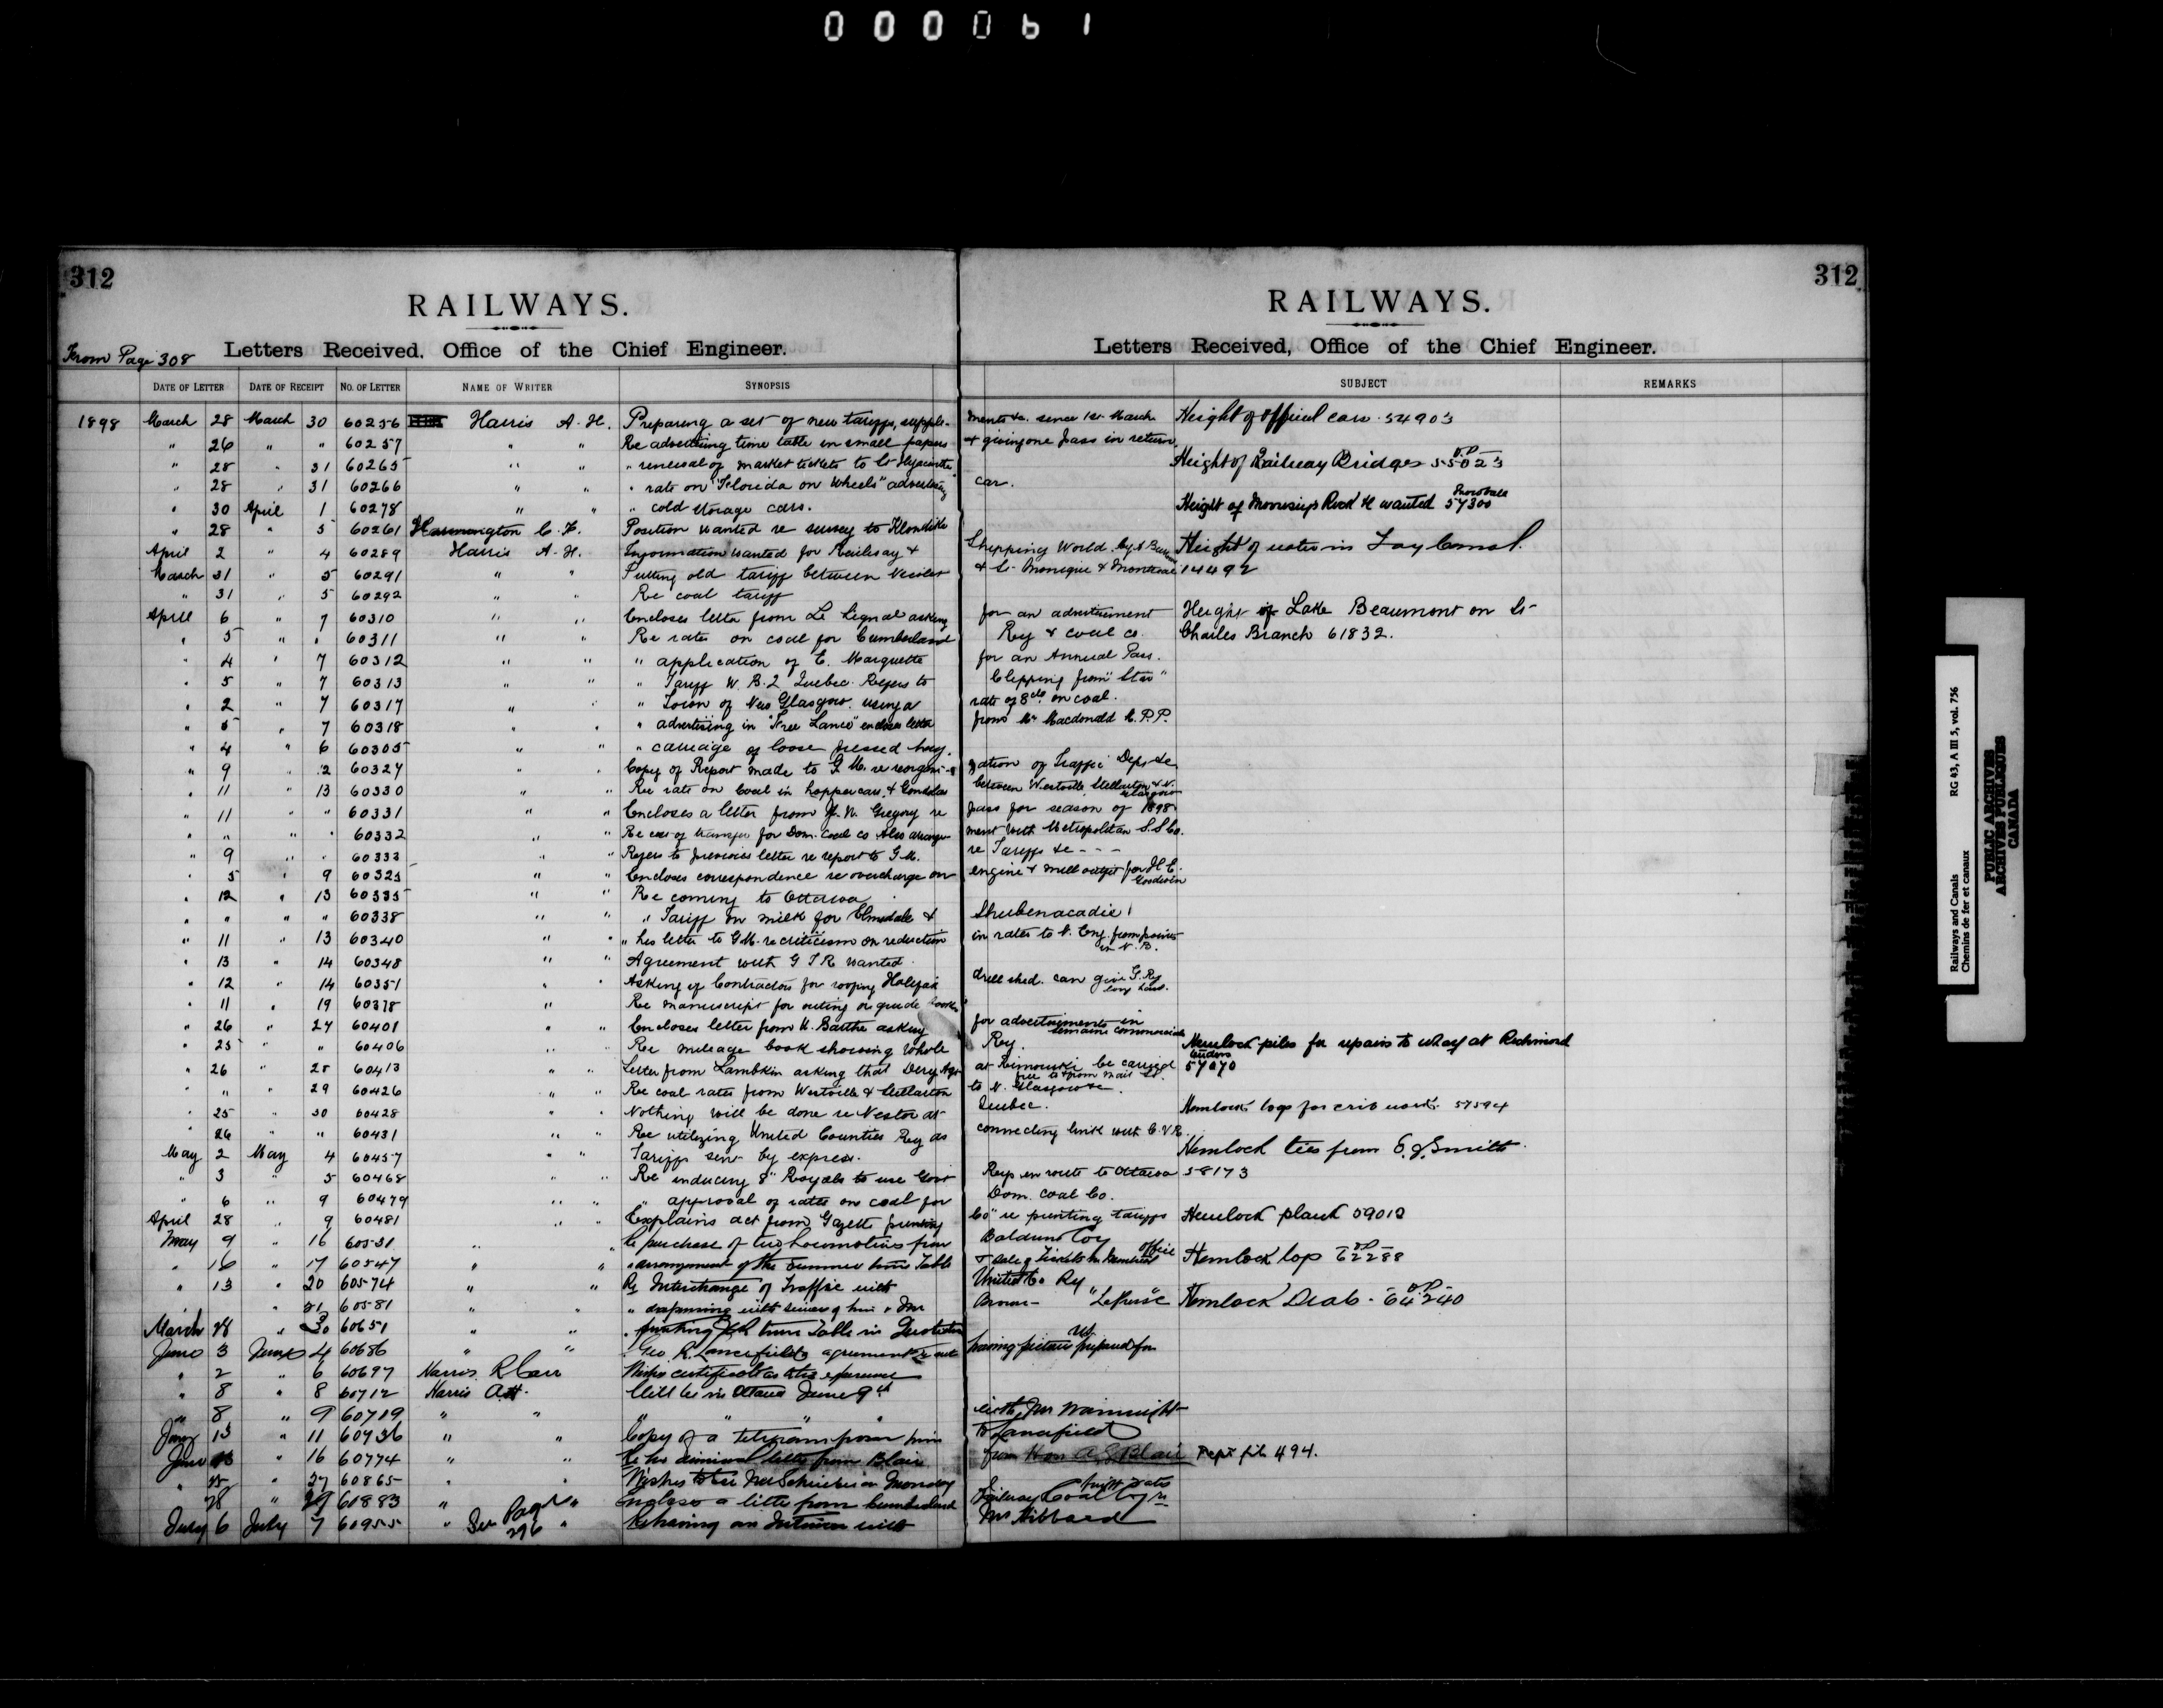 000061
312
RAILWAYS.
From Page 308 Letters Received, Office of the Chief Engineer.
DATE OF LETTER DATE OF RECEIPT NO. OF LETTER NAME OF WRITER SYNOPSIS
1898 March 28 March 30 60256 Harris A. H. Preparing a set of new tariffs, supple-
" 26 " " 60257 " " Re advertising time table in small papers
" 28 " 31 60265 " " " renewal of market tickets to St Hyacinthe
" 28 " 31 60266 " " " rate on "Florida on Wheels" advertising
" 30 April 1 60278 " " " cold storage cars.
" 28 " 5 60261 Harrington C. F. Position wanted re survey to Klondike
April 2 " 4 60289 Harris A. H. Information wanted for Railway &
March 31 " 5 60291 " " Putting old tariff between
" 31 " 5 60292 " " Re coal tariff
April 6 " 7 60310 " " Encloses letter from Le Signal asking
" 5 " " 60311 " " Re rates on coal for Cumberland
" 4 " 7 60312 " " " application of E. Marquette
" 5 " 7 60313 " " " Tariff W. B. 2 Quebec. Refers to
" 2 " 7 60317 " " " Town of New Glasgow using a
" 5 " 7 60318 " " " advertising in "Free Lance" encloses letter
" 4 " 6 60305 " " " carriage of loose pressed hay.
" 9 " 12 60327 " " Copy of Report made to G. M. re reorgani-
" 11 " 13 60330 " " Re rate on Coal in hopper cars & Gondolas
" 11 " " 60331 " " Encloses a letter from J. N. Gregory re
" " " " 60332 " " Re cost of transfer for Dom. Coal Co Also arrange-
" 9 " " 60333 " " Refers to previous letter re report to G. M.
" 5 " 9 60325 " " Encloses correspondence re overcharge on
" 12 " 13 60335 " " Re coming to Ottawa
" " " " 60338 " " " Tariff on milk for Elmsdale &
" 11 " 13 60340 " " " his letter to G.M. re criticism on reduction
" 13 " 14 60348 " " Agreement with G T R wanted.
" 12 " 14 60351 " " Asking if Contractors for roofing Halifax
" 11 " 19 60378 " Re manuscript for outing or guide book
" 26 " 27 60401 " " Encloses letter from U. Barthe asking
" 25 " " 60406 " " Re mileage book showing whole
" 26 " 28 60413 " " Letter from Lambkin asking that Dery Agt
" " " 29 60426 " " Re coal rates from Westville & Stellarton
" 25 " 30 60428 " " Nothing will be done re Nestor at
" 26 " " 60431 " " Re utilizing United Counties Ry as
May 2 May 4 60457 " " Tariffs sent by express.
" 3 " 5 60468 " " Re inducing 8" Royals to use Govt
" 6 " 9 60479 " " " approval of rates on coal for
April 28 " 9 60481 " " Explains act from Gazette printing
May 9 " 16 60531 " " Re purchase of two Locomotives from
" 16 " 17 60547 " " " arrangement of the Summer time Table
" 13 " 20 60574 " " Re Interchange of Traffic with
" " 21 60581 " " " dispensing with services of him & Mr
March 28 " 30 60651 " " " printing time Table in
June 3 June 4 60686 " " " Geo R. Lancefield's agreement
" 2 " 6 60697 Harris R Carr Wishes certificate as to his experience
" 8 " 8 60712 Harris A.H. Will be in Ottawa June 9th
" 8 " 9 60719 " " " " " "
June 13 " 11 60736 " " Copy of a telegram from him
June 13 " 16 60774 " " Re his dismissal letter from Blair
" 25 " 27 60865 " " Wishes to see Mr Schreiber on Monday
" 28 " 29 60883 " " Encloses a letter from Cumberland
July 6 July 7 60955 " See Page 296 " Re having an Interview with
312
RAILWAYS.
Letters Received, Office of the Chief Engineer.
SUBJECT REMARKS
ments &c. since 1st March Height of official cars. 54903
& giving one pass in return.
Height of Railway Bridges 55023
car.
Height of Morrisey's Rock wanted 57300
Shipping World. Height of water in Tay Canal.
& St Monique & Montreal 14492
for an advertisement Height of Lake Beaumont on St
Ry & coal co. Charles Branch 61832.
for an Annual Pass.
Clipping from "Star"
rate of 8cts. on coal.
from Mr Macdonald M.P.P.
zation of Traffic Dept &c
between Westville, Stellarton & N. Glasgow
pass for season of 1898
ment with Metropolitan S.S Co.
re Tariffs &c - - -
engine & mill outfit for H E. Goodwin
Shubenacadie
in rates to N. Eng. from points in N. B.
drill shed. can give G. Ry long haul.
for advertisements in Semaine Commerciale
Ry. Hemlock piles for repairs to wharf at Richmond
at Rimouski be carried free to & from mail St. tenders 57070
to N. Glasgow &c
Quebec. Hemlock logs for crib work. 57594
connecting link with C.V.R.
Hemlock ties from E. J. Smith
Rys en route to Ottawa 58173
Dom. Coal Co.
Co" re printing tariffs Hemlock plank 59012
Baldwin Coy
& sale of Tickets in Montreal office Hemlock lop 62288
United Co Ry
Brown - Hemlock Deals - 64240
having picture prepared for
with Mr Wainwright
to Lancefield
from Hon A G Blair Dept file 494.
Railway Coal Coy re freight rates
Mr Hibbard
Railways and Canals RG 43, A III 5, vol. 756
Chemins de fer et canaux
PUBLIC ARCHIVES
ARCHIVES PUBLIQUES
CANADA